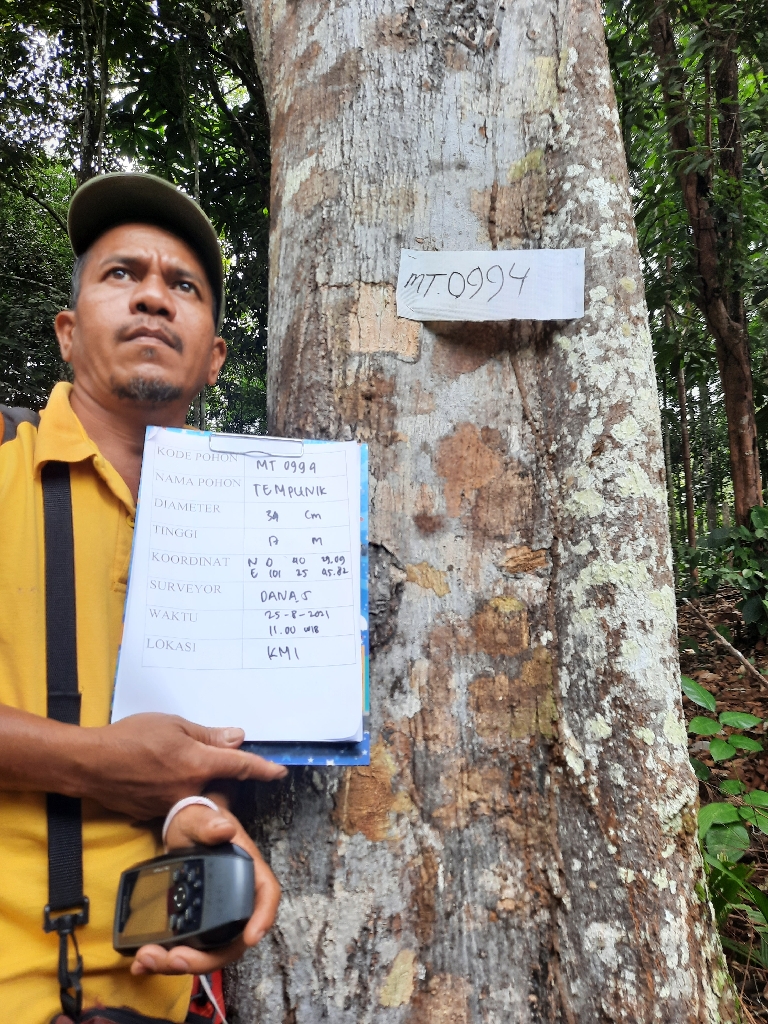 MT.0994
KODE POHON MT 0994
NAMA POHON TEMPUNIK
DIAMETER 34 Cm
TINGGI 17 M
KOORDINAT N 0 40 29.09
E 101 25 45.82
SURVEYOR DANAS
WAKTU 25-8-2021
11.00 WIB
LOKASI KMI